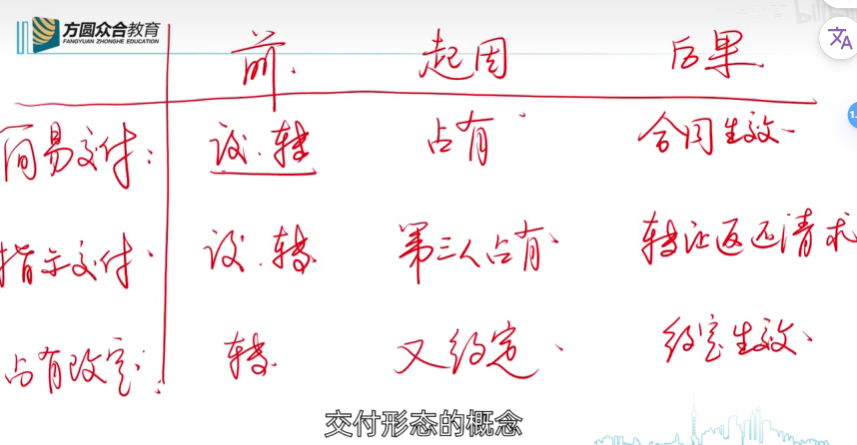 方圆众合教育
FANGYUAN ZHONGHE EDUCATION
bilibili
前. 起因 后果
简易交付: 设.转 占有 合同生效
指示交付. 设.转 第三人占有 转让返还请求
占有改定: 转 又约定 约定生效
交付形态的概念